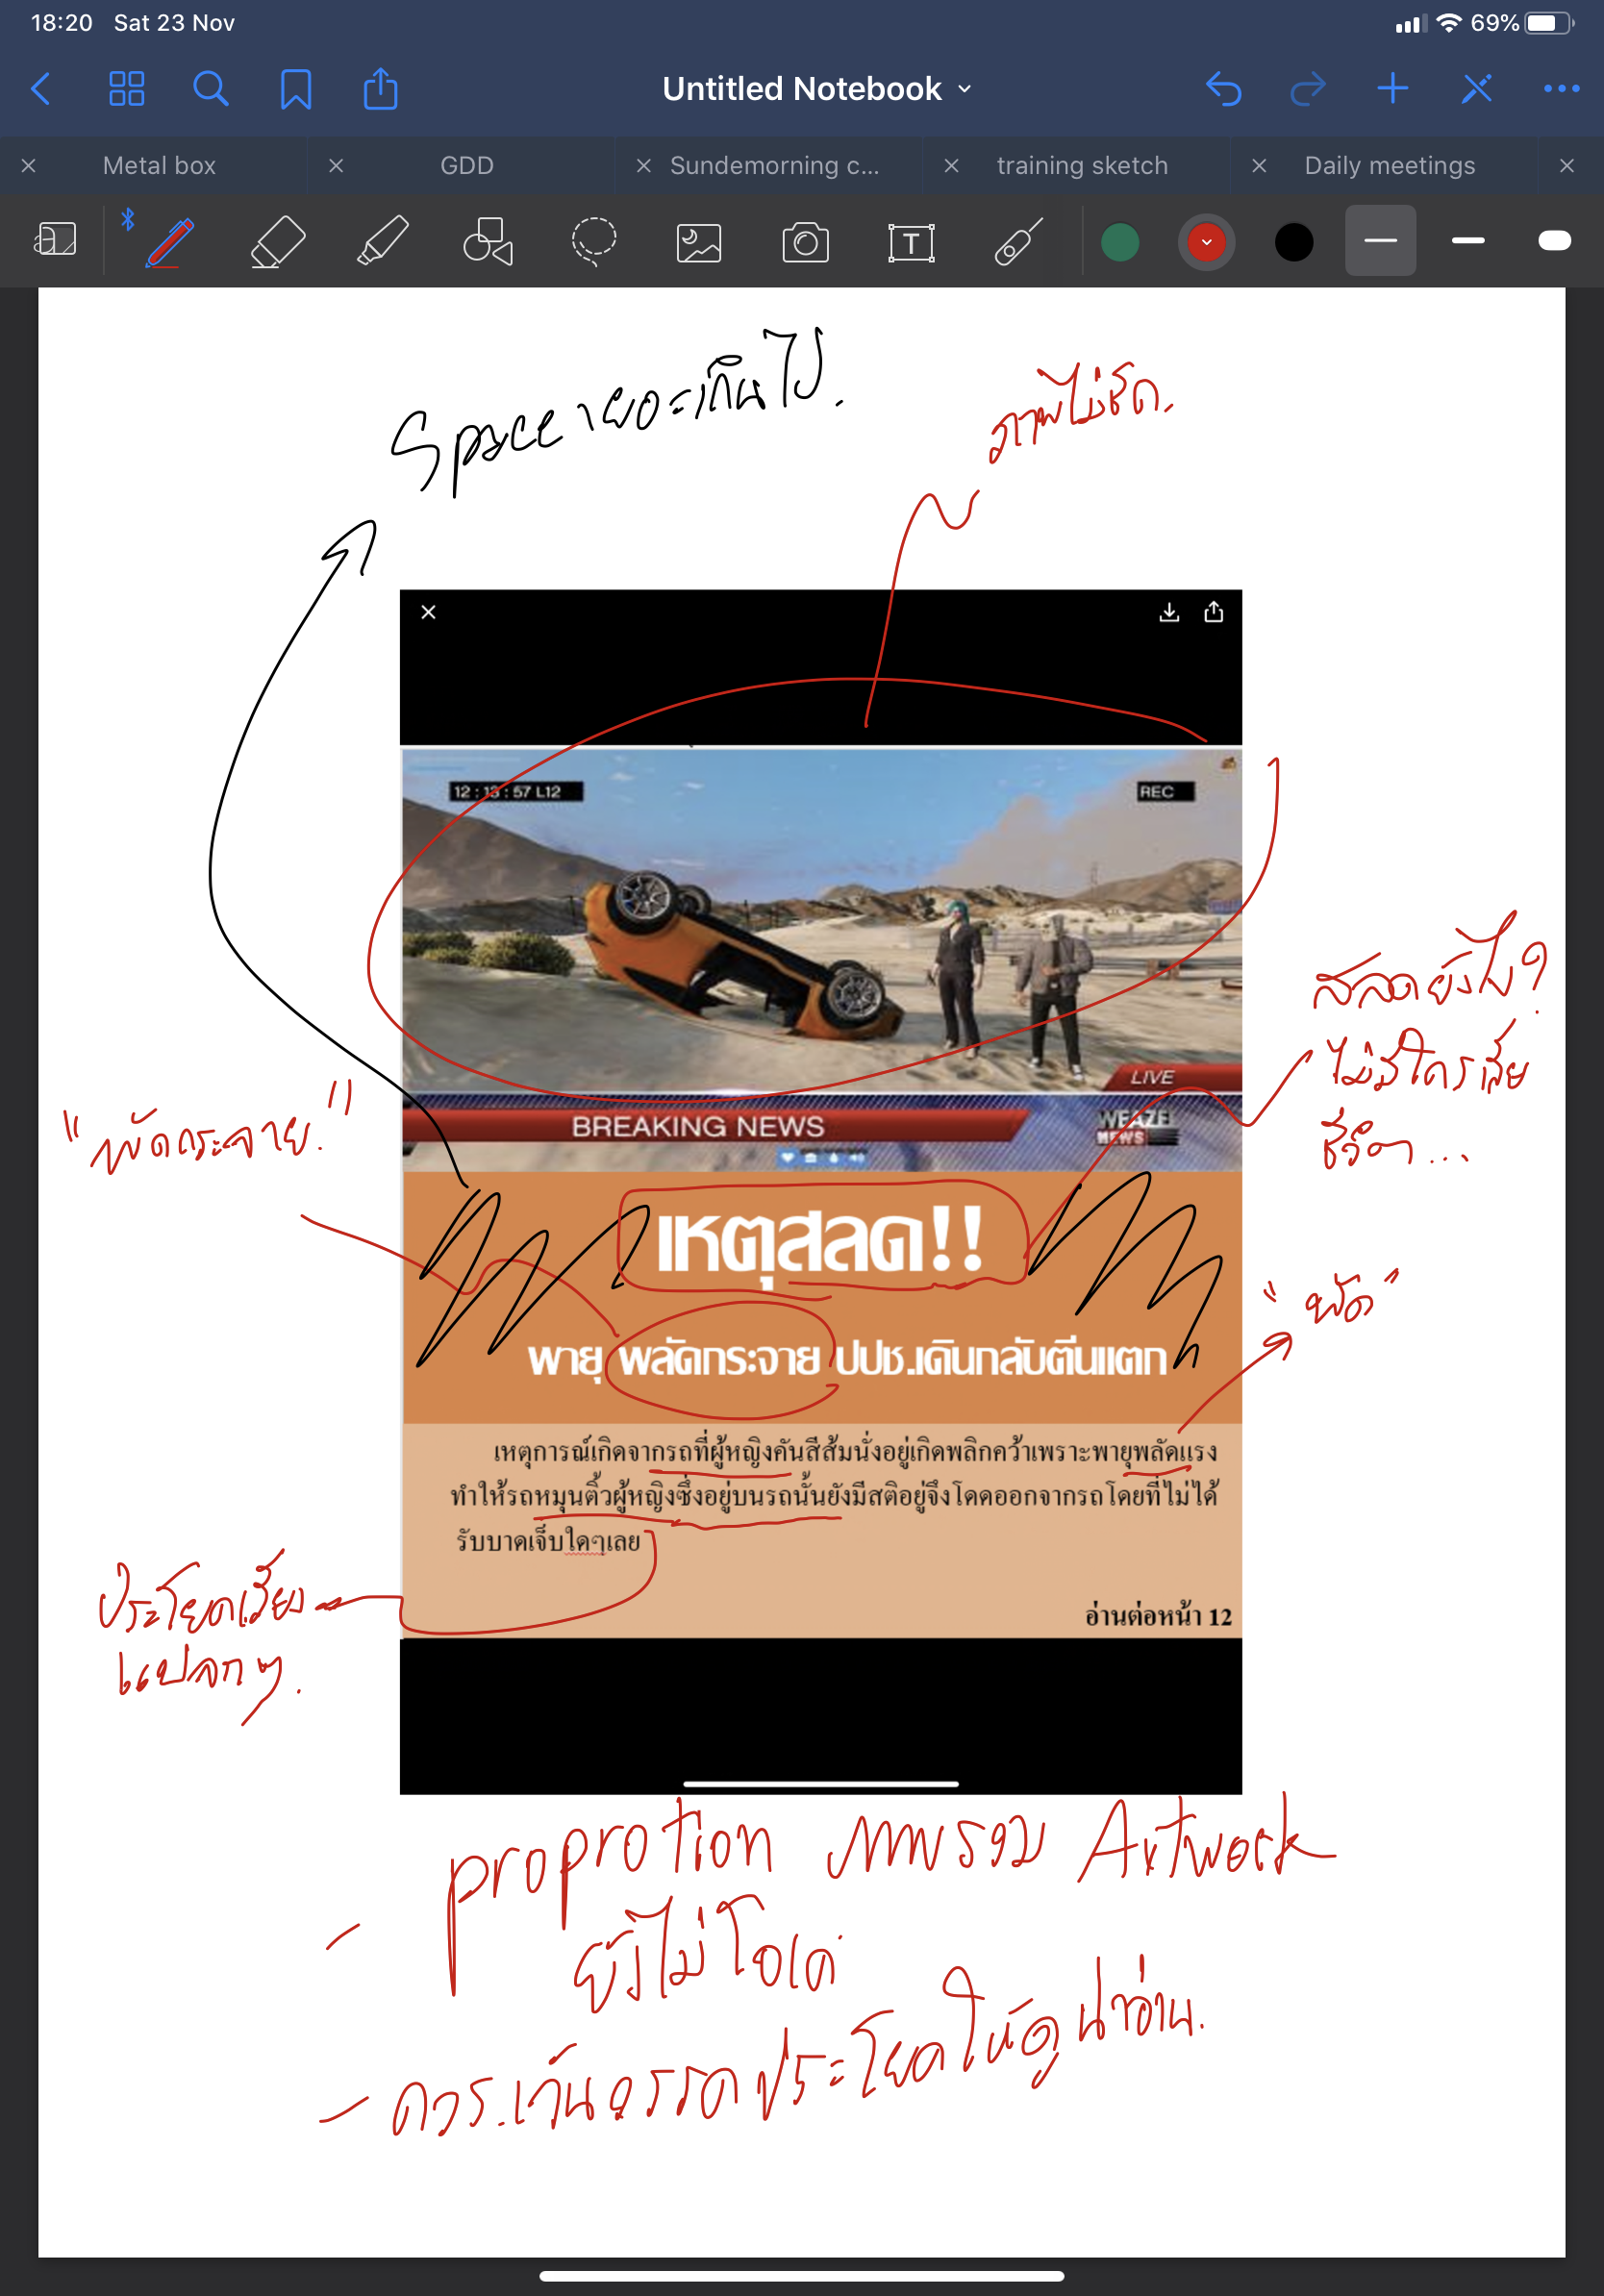 18:20 Sat 23 Nov
69%
Untitled Notebook
Metal box
GDD
Sundemorning c...
training sketch
Daily meetings
Space เยอะเกินไป.
ภาพไม่ชัด.
12:13:57 L12
REC
LIVE
BREAKING NEWS
WEAZEL
NEWS
สลดยังไง?
ไม่มีใครเสีย
ชีวิต...
"พัดกระจาย."
เหตุสลด!!
"พัด"
พายุ พลัดกระจาย ปปช.เดินกลับตีนแตก
เหตุการณ์เกิดจากรถที่ผู้หญิงคันสีส้มนั่งอยู่เกิดพลิกคว้าเพราะพายุพลัดแรง
ทำให้รถหมุนติ้วผู้หญิงซึ่งอยู่บนรถนั้นยังมีสติอยู่จึงโดดออกจากรถโดยที่ไม่ได้
รับบาดเจ็บใดๆเลย
ประโยคเรียง
แปลกๆ.
อ่านต่อหน้า 12
- proprotion ภาพรวม Artwork
ยังไม่โอเค
- ควร.เว้นวรรคประโยคให้ดูน่าอ่าน.